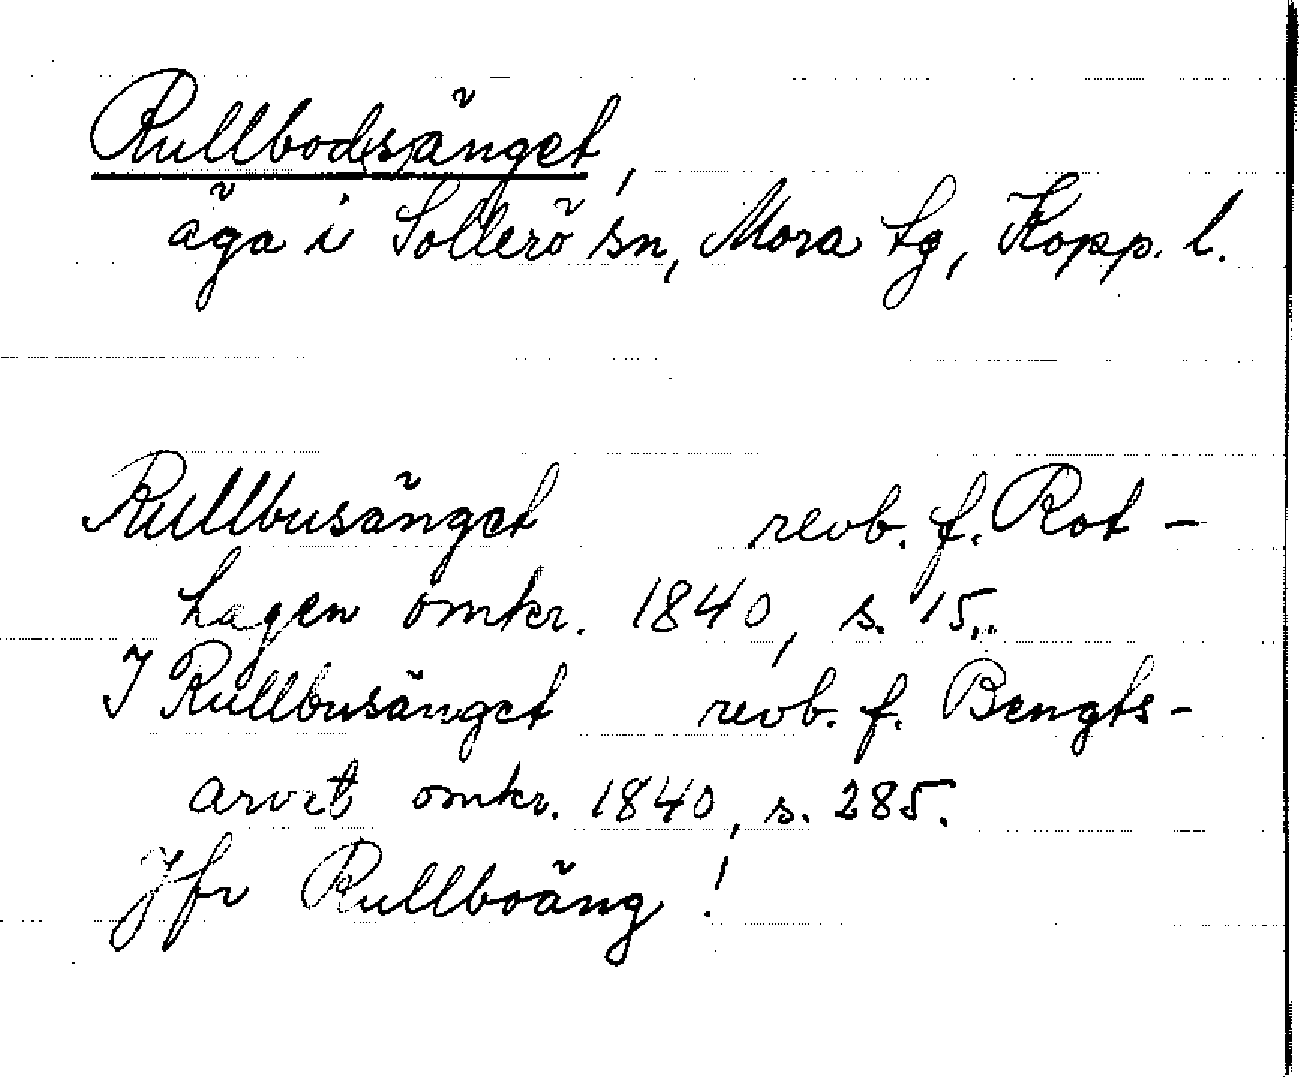 Rullbod(s)änget,
äga i Sollerö sn, Mora tg, Kopp. l.
Rullbusänget revb. f. Rot-
hagen omkr. 1840, s. 15.
I Rullbusänget revb. f. Bengts-
arvet omkr. 1840, s. 285.
Jfr Rullboäng!